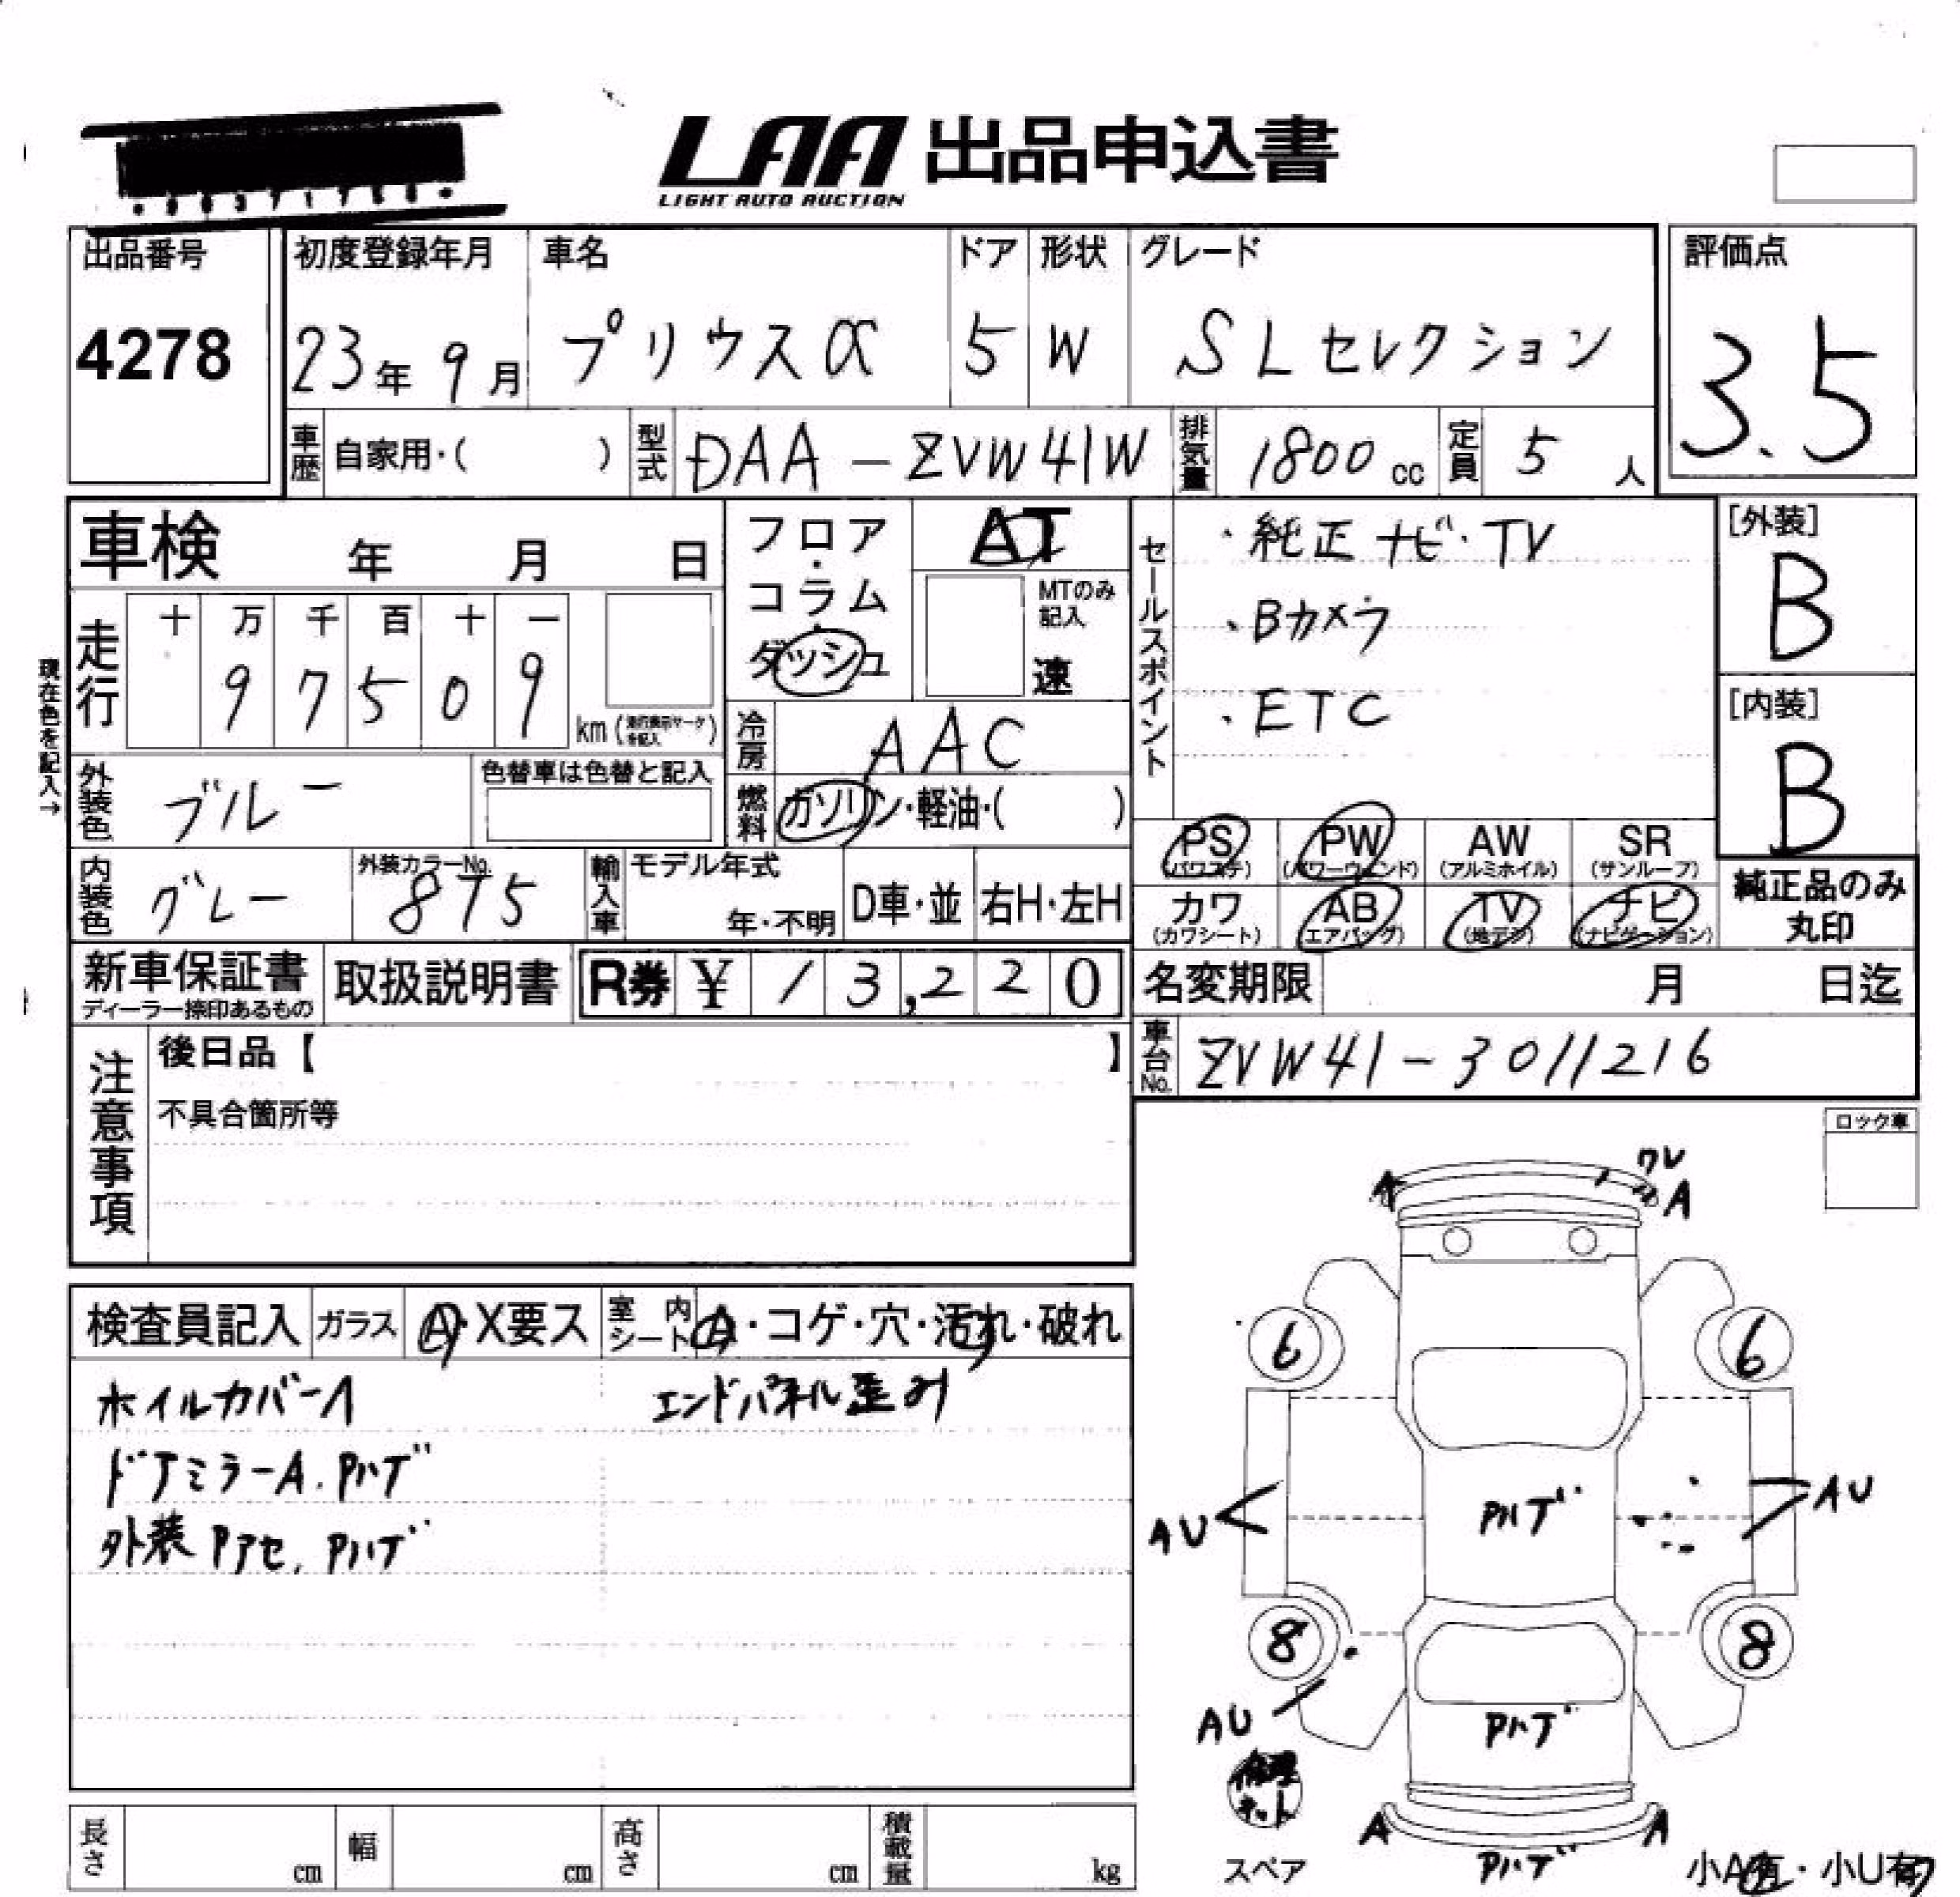 LAA 出品申込書
LIGHT AUTO AUCTION
出品番号 初度登録年月 車名 ドア 形状 グレード 評価点
4278 23年 9月 プリウスα 5 W SLセレクション 3.5
車歴 自家用・( ) 型式 DAA-ZVW41W 排気量 1800 cc 定員 5 人
車検 年 月 日
フロア・コラム・ダッシュ
AT
MTのみ記入
速
セールスポイント
・純正ナビ・TV
・Bカメラ
・ETC
[外装]
B
[内装]
B
現在色を記入→
走行 十 万 千 百 十 一
9 7 5 0 9 km (走行表示マークを記入)
冷房 AAC
外装色 ブルー 色替車は色替と記入
燃料 ガソリン・軽油・( )
PS (パワステ) PW (パワーウィンド) AW (アルミホイル) SR (サンルーフ)
カワ (カワシート) AB (エアバッグ) TV (地デジ) ナビ (ナビゲーション)
純正品のみ丸印
内装色 グレー 外装カラーNo. 875 輸入車 モデル年式 年・不明 D車・並 右H・左H
新車保証書 ディーラー捺印あるもの 取扱説明書 R券 ¥ 13,220 名変期限 月 日迄
車台No. ZVW41-3011216
注意事項
後日品【 】
不具合箇所等
ロック車
検査員記入 ガラス A・X要ス 室内シート A・コゲ・穴・汚れ・破れ
ホイルカバーA エンドパネル歪み
ドアミラーA.Pハゲ
外装Pアセ.Pハゲ
ワレ
A A
6 6
AU Pハゲ AU
8 8
AU Pハゲ
修理キット
A A
スペア Pハゲ 小A有・小U有
長さ cm 幅 cm 高さ cm 積載量 kg